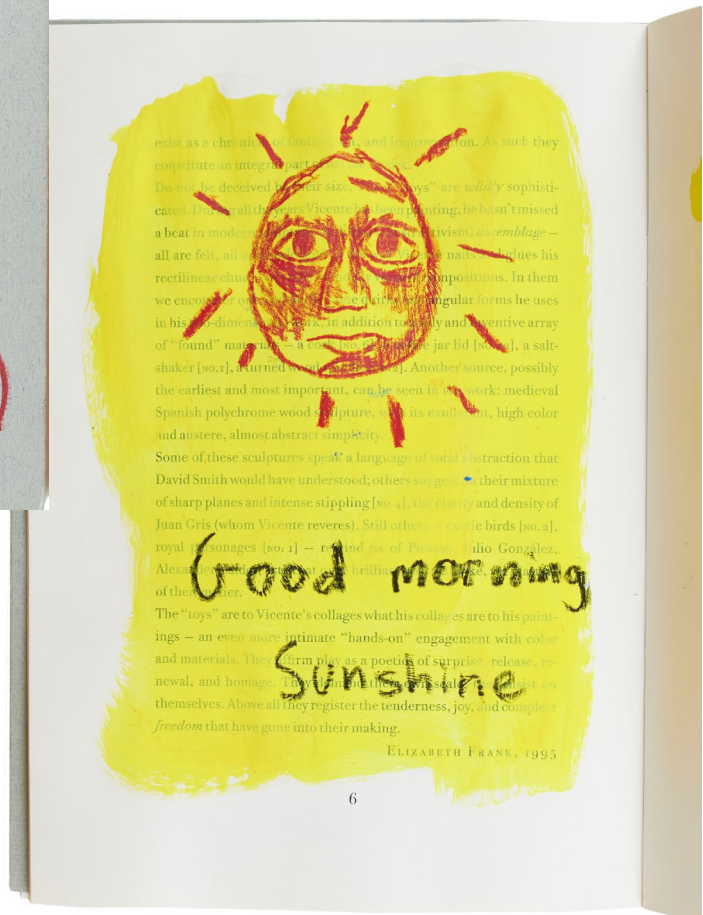 exist as a chronicle of fantasy, wit, and improvisation. As such they
constitute an integral part
Do not be deceived by their size. "toys" are wildly sophisti-
cated. During all the years Vicente has been painting, he hasn't missed
a beat in modern assemblage –
all are felt, all nails and glues his
rectilinear compositions. In them
we encounter quirky triangular forms he uses
in his two-dimensional work, in addition to a and inventive array
of "found" materials – a cork jar lid a salt-
shaker [no. 1], a turned wood Another source, possibly
the earliest and most important, can be seen in work: medieval
Spanish polychrome wood sculpture, with its exuberant, high color
and austere, almost abstract simplicity.
Some of these sculptures speak a language of total abstraction that
David Smith would have understood; others suggest, in their mixture
of sharp planes and intense stippling [no. 4], the clarity and density of
Juan Gris (whom Vicente reveres). Still others – exotic birds [no. 2],
royal personages [no. 1] – remind us of Picasso, Julio González,
Good morning
The "toys" are to Vicente's collages what his collages are to his paint-
ings – an even more intimate "hands-on" engagement with color
and materials. They affirm play as a poetics of surprise, release, re-
newal, and homage.
Sunshine
themselves. Above all they register the tenderness, joy, and complete
freedom that have gone into their making.
Elizabeth Frank, 1995
6